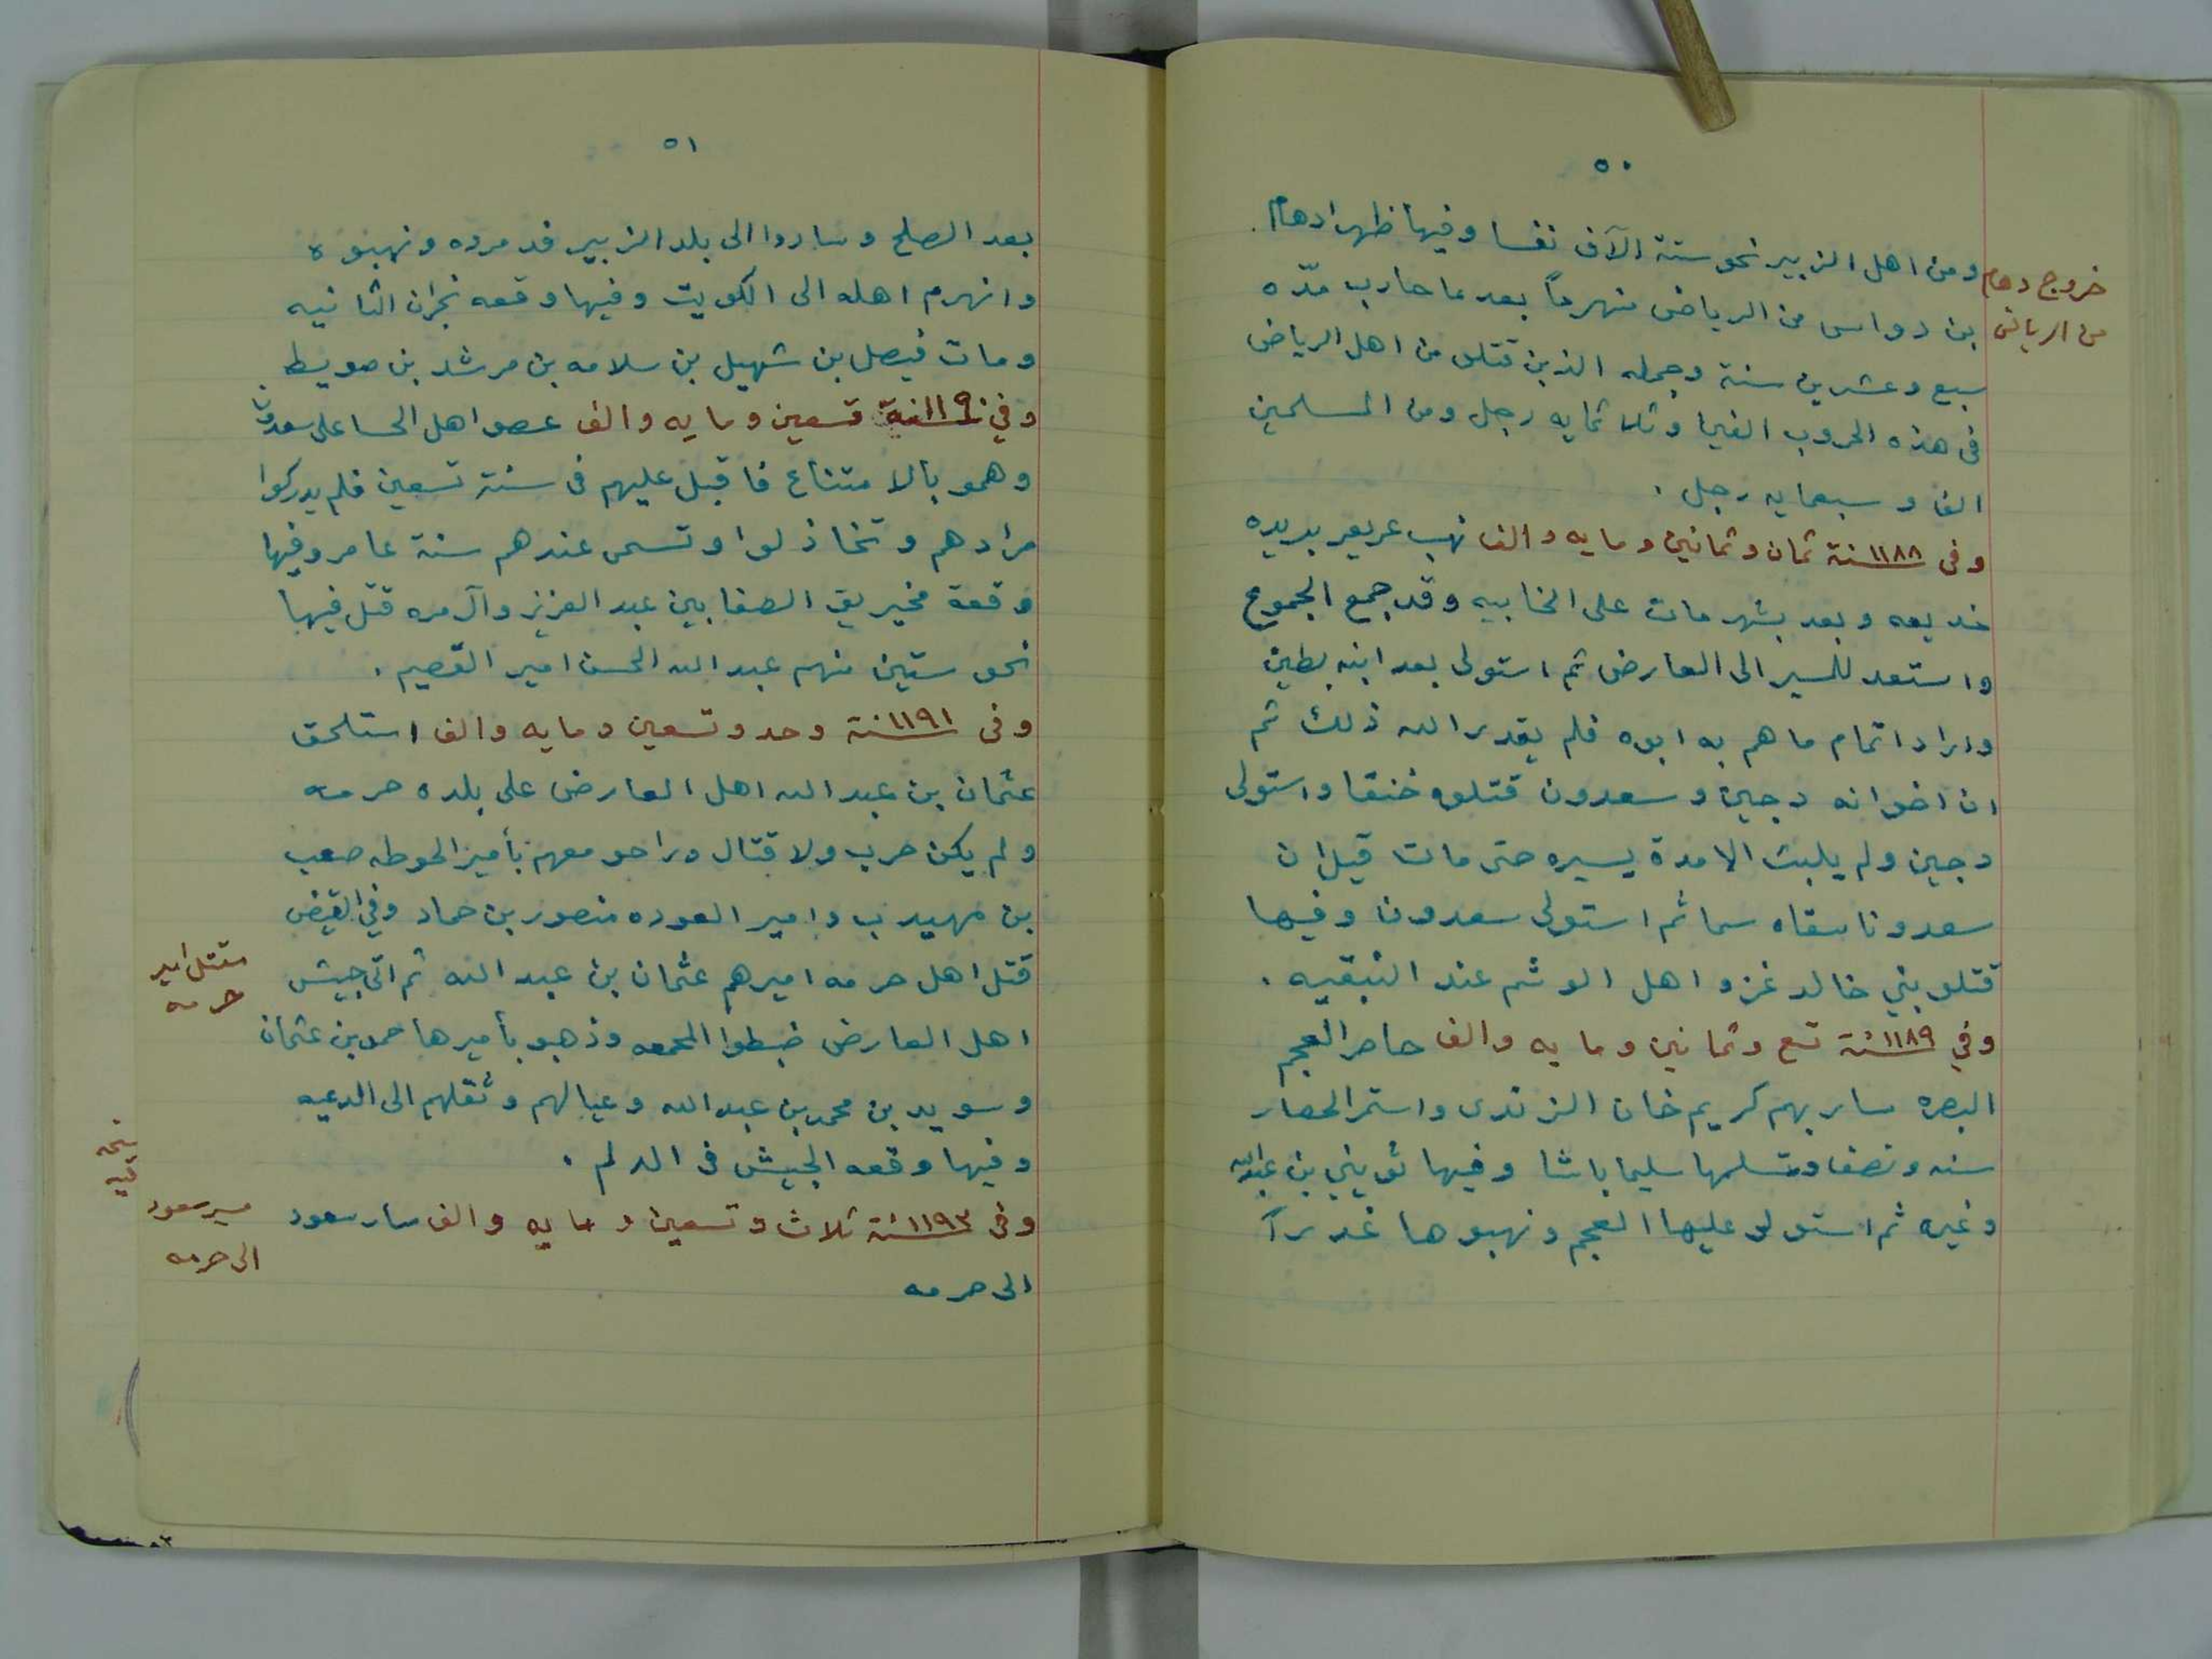 ٥٠
ومن اهل الزبير نحو ستة الآف نفسا وفيها ظهر ادهام
خروج دهام
من الرياض
بن دواس من الرياض منهزماً بعد ما حارب مدّه
سبع وعشرين سنة وجمله الذين قتلو من اهل الرياض
فى هذه الحروب الفين وثلاثمايه رجل ومن المسلمين
الف وسبعمايه رجل .
وفى ١١٨٨ سنة ثمان وثمانين ومايه والف نهب عريعر بريده
خديعه وبعد بشهر مات على الخابيه وقد جمع الجموع
واستعد للمسير الى العارض ثم استولى بعد ابنه بطين
واراد اتمام ما هم به ابوه فلم يقدر الله ذلك ثم
ان اخوانه دجين وسعدون قتلوه خنقا واستولى
دجين ولم يلبث الا مدة يسيره حتى مات قيل ان
سعدونا سقاه سما ثم استولى سعدون وفيها
قتلو بني خالد غزو اهل الوشم عند النبقيه .
وفي ١١٨٩ سنة تسع وثمانين ومايه والف حاصر العجم
البصره سار بهم كريم خان الزندى واستمر الحصار
سنه ونصف وتسلمها سليما باشا وفيها ثويني بن عبدالله
وغيره ثم استولو عليها العجم ونهبوها غدراً
٥١
بعد الصلح وساروا الى بلد الزبير فدمروه ونهبوه
وانهزم اهله الى الكويت وفيها وقعه نجران الثانيه
ومات فيصل بن شهيل بن سلامه بن مرشد بن صويط .
وفي ١١٩٠ سنة تسعين ومايه والف عصو اهل الحسا على سعدون
وهمو بالامتناع فاقبل عليهم فى سنة تسعين فلم يدركوا
مرادهم وتخاذلوا وتسمى عندهم سنة عامر وفيها
وقعة مخيريق الصفا بين عبد العزيز وآل مره قتل فيها
نحو ستين منهم عبد الله الحسن امير القصيم .
وفى ١١٩١ سنة وحد وتسعين ومايه والف استلحق
عثمان بن عبد الله اهل العارض على بلده حرمه
ولم يكن حرب ولا قتال وراحو معهم بأمير الحوطه صعب
بن مهيدب وامير العوده منصور بن حماد وفي القيض
قتل اهل حرمه اميرهم عثمان بن عبد الله ثم اتى جيش
مقتل امير
حرمه
اهل العارض ضبطوا المجمعه وذهبو بأميرها حمد بن عثمان
وسويد بن محمد بن عبد الله وعيالهم وثقلهم الى الدرعيه
وفيها وقعه الجيش فى الدلم .
وفى ١١٩٣ سنة ثلاث وتسعين ومايه والف سار سعود
مسير سعود
الى حرمه
الى حرمه